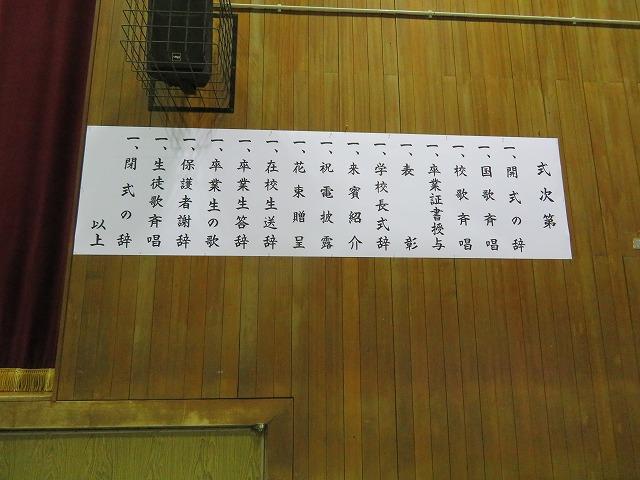 式次第
一、開式の辞
一、国歌斉唱
一、校歌斉唱
一、卒業証書授与
一、表彰
一、学校長式辞
一、来賓紹介
一、祝電披露
一、花束贈呈
一、在校生送辞
一、卒業生答辞
一、卒業生の歌
一、保護者謝辞
一、生徒歌斉唱
一、閉式の辞
以上